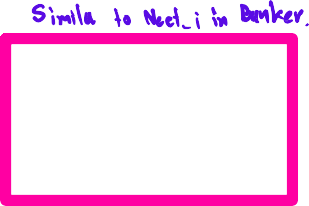 Similar to Need_i in Banker.